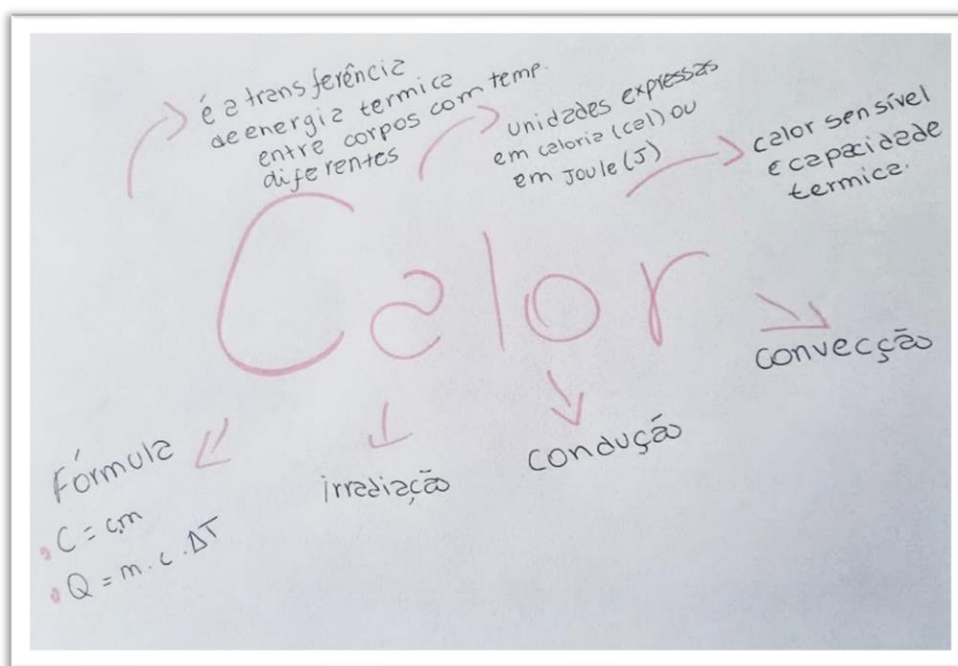 é a transferência
de energia termica
entre corpos com temp.
diferentes
unidades expressas
em caloria (cal) ou
em Joule (J)
calor sensível
e capacidade
termica.
Calor
convecção
condução
irradiação
Fórmula
C = c.m
Q = m.c.ΔT